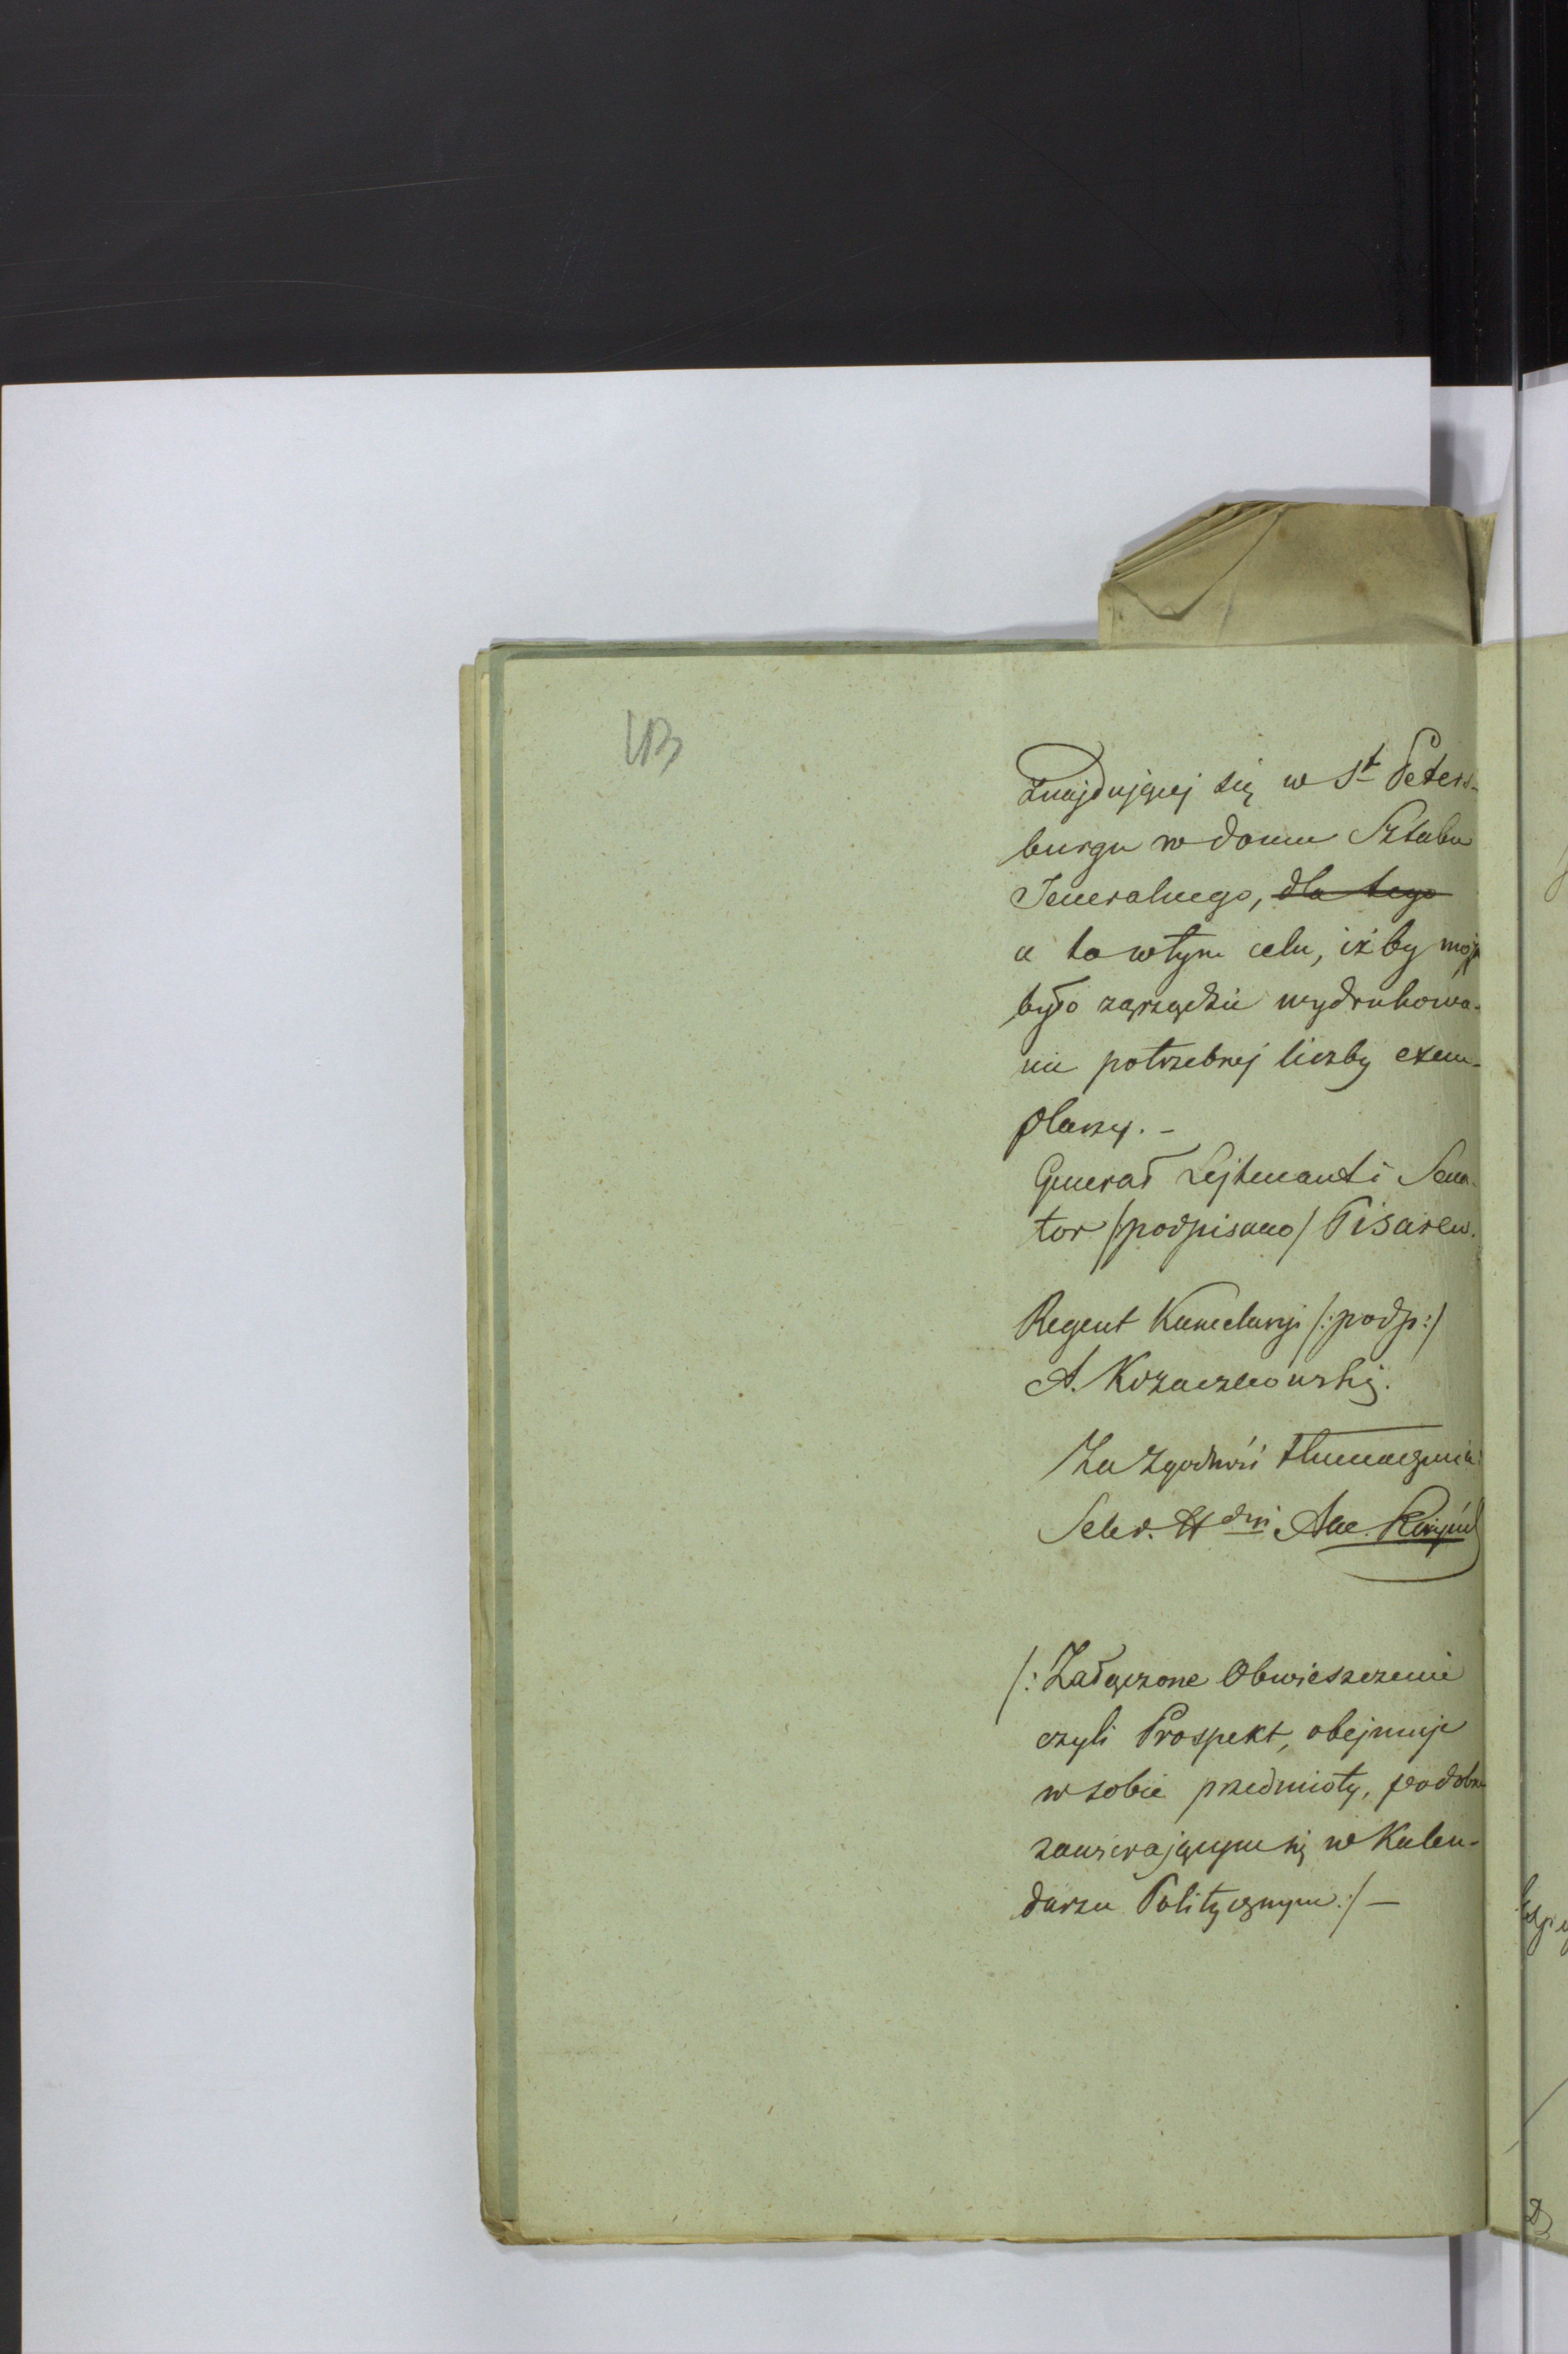 43
znajdującej się w St Peters-
burgu w domu Sztabu
Jeneralnego, dla tego
a to w tym celu, iżby moż
było zarządzić wydrukowa-
nie potrzebnej liczby exem-
plarzy. –
Generał Lejtenant i Sena-
tor /podpisano/ Pisarew.
Regent Kancelaryi /:podp:/
A. Krzaczkowski.
Za zgodność tłumaczenia
Sekr.
/: Załączone Obwieszczenie
czyli Prospekt, obejmuje
w sobie przedmioty, podobne
zawierającym się w Kalen-
darzu Politycznym :/ –